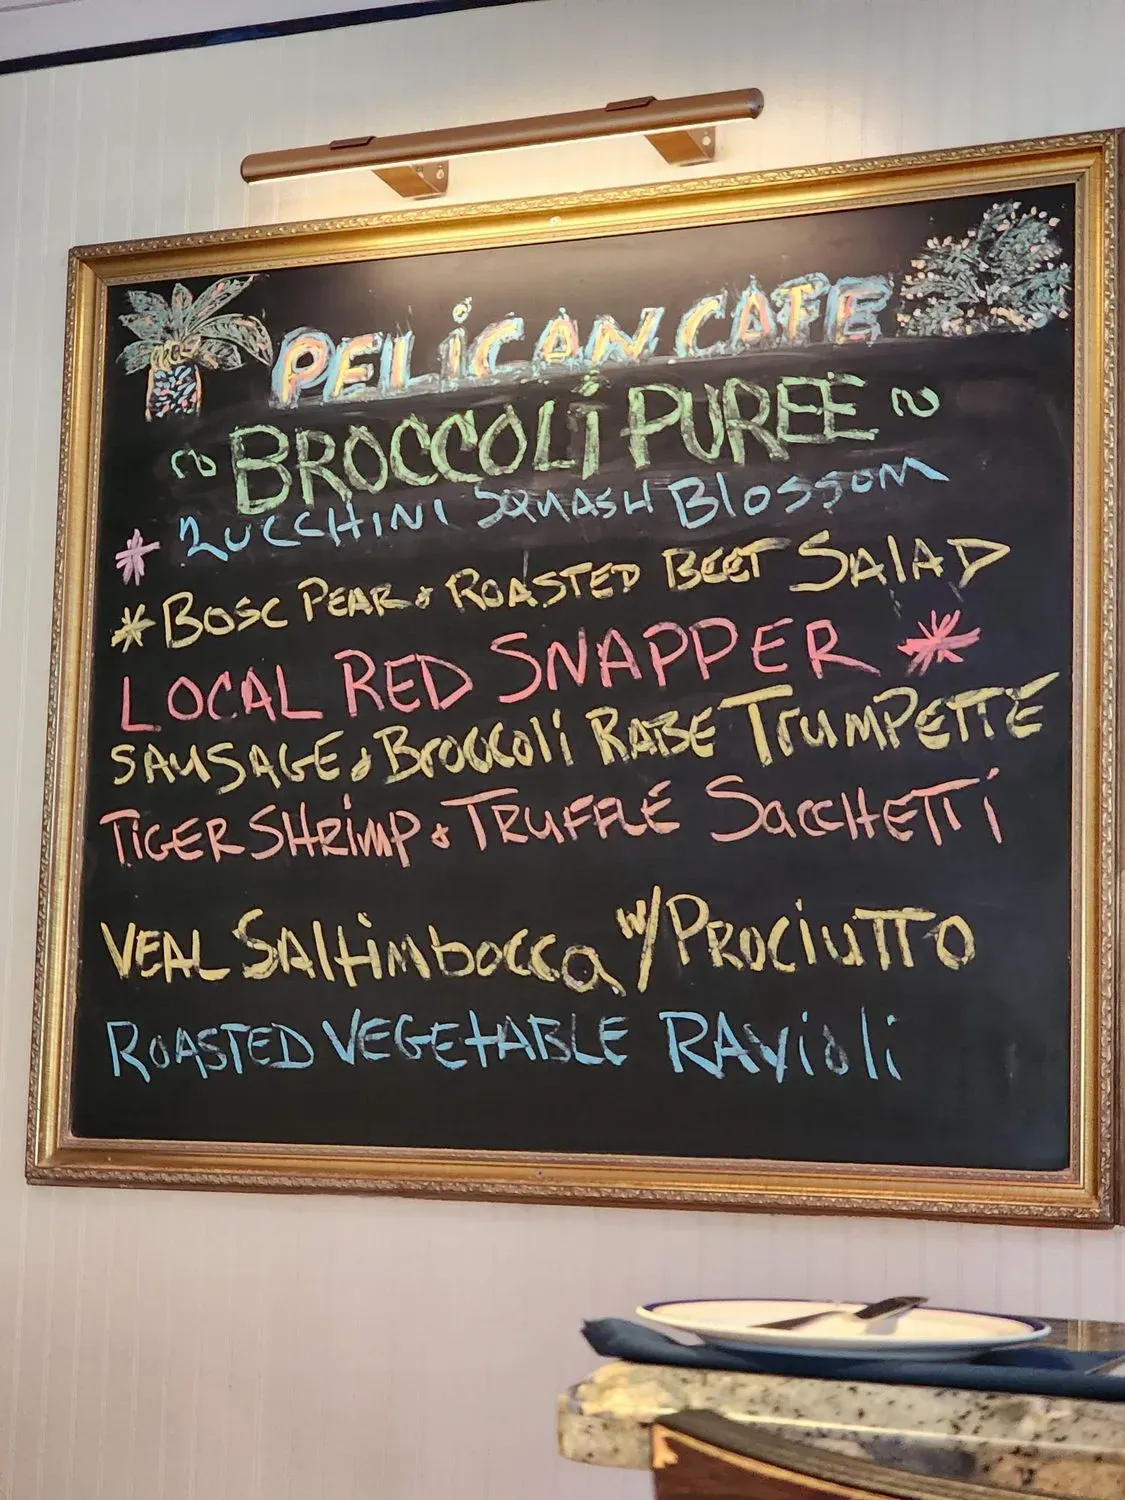 PELICAN CAFE
~ BROCCOLI PUREE ~
* ZUCCHINI SQUASH BLOSSOM
* BOSC PEAR & ROASTED BEET SALAD
LOCAL RED SNAPPER *
SAUSAGE & BROCCOLI RABE TRUMPETTE
TIGER SHRIMP & TRUFFLE SACCHETTI
VEAL SALTIMBOCCA W/ PROCIUTTO
ROASTED VEGETABLE RAVIOLI